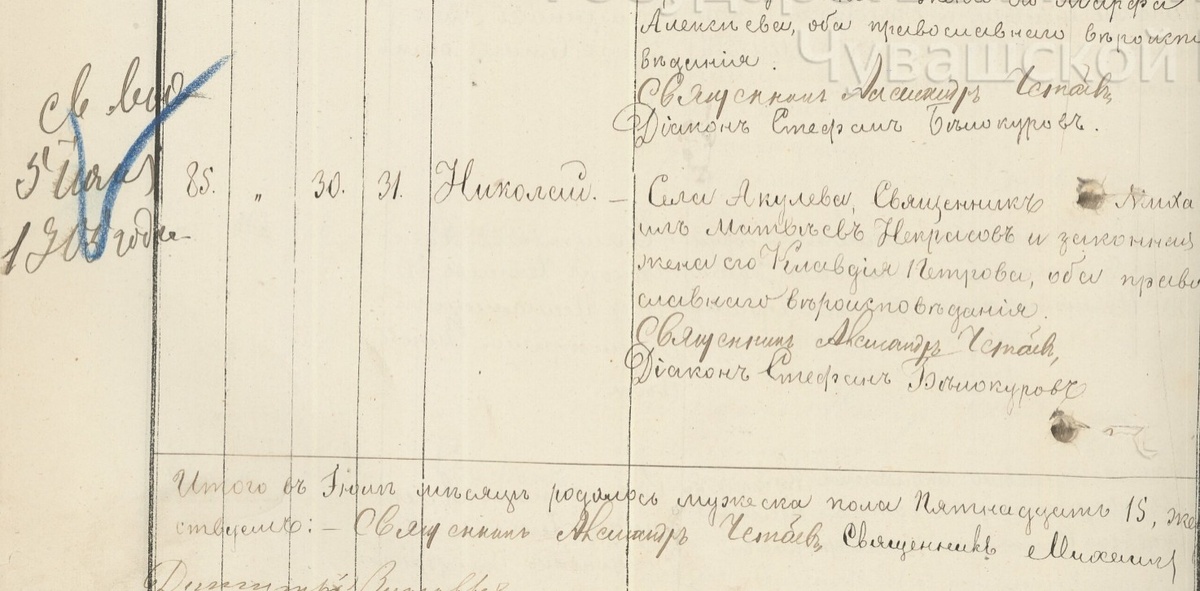 Чувашской
Алексѣева, оба православнаго вѣроиспо
вѣданія.
Священникъ Александръ Честаевъ,
Діаконъ Стефанъ Бѣлокуровъ.
5
190 года
85. „ 30. 31. Николай. — Села Акулева, Священникъ Миха
илъ Матвѣевъ Некрасовъ и законная
жена его Клавдія Петрова, оба право
славнаго вѣроисповѣданія.
Священникъ Александръ Честаевъ,
Діаконъ Стефанъ Бѣлокуровъ
Итого въ Іюлѣ мѣсяцѣ родилось мужеска пола Пятнадцать 15, же
ствуемъ: — Священникъ Александръ Честаевъ, Священникъ Михаилъ